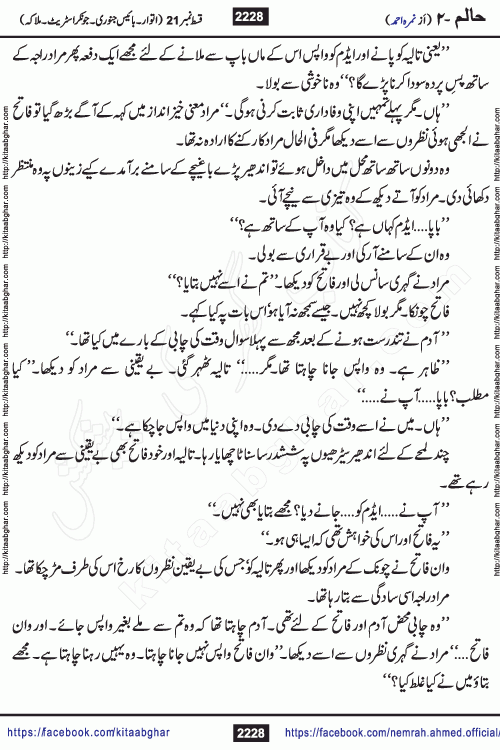 حالم ۔۲ (از نمرہ احمد)
2228
قسط نمبر 21 (اتوار۔ بائیس جنوری۔ جونکر اسٹریٹ۔ ملاکہ)
’’یعنی تالیہ کو پانے اور ایڈم کو واپس اس کے ماں باپ سے ملانے کے لئے مجھے ایک دفعہ پھر مراد راجہ کے
ساتھ پس پردہ سودا کرنا پڑے گا؟‘‘ وہ ناخوشی سے بولا۔
’’ہاں۔ مگر پہلے تمہیں اپنی وفاداری ثابت کرنی ہوگی۔‘‘ مراد معنی خیز انداز میں کہہ کے آگے بڑھ گیا تو فاتح
نے الجھی نظروں سے اسے دیکھا مگر فی الحال مراد کا رکنے کا ارادہ نہ تھا۔
وہ دونوں ساتھ ساتھ محل میں داخل ہوئے تو اندھیر پڑے باغیچے کے سامنے برآمدے کے زینوں پہ وہ منتظر
دکھائی دی۔ مراد کو آتے دیکھ کے وہ تیزی سے نیچے آئی۔
’’باپا.... ایڈم کہاں ہے؟ کیا وہ آپ کے ساتھ ہے؟‘‘
وہ ان کے سامنے آ رکی اور بے قراری سے بولی۔
مراد نے گہری سانس لی اور فاتح کو دیکھا۔ ’’تم نے اسے نہیں بتایا؟‘‘
فاتح چونکا۔ مگر بولا کچھ نہیں۔ جیسے سمجھ نہ آیا ہو‘ اس بات پہ کیا کہے۔
’’آدم نے تندرست ہونے کے بعد مجھ سے پہلا سوال وقت کی چابی کے بارے میں کیا تھا۔‘‘
’’ظاہر ہے۔ وہ واپس جانا چاہتا تھا۔ مگر.....‘‘ تالیہ ٹھہر گئی۔ بے یقینی سے مراد کو دیکھا۔ ’’کیا
مطلب؟ باپا..... آپ نے.....‘‘
’’ہاں۔ میں نے اسے وقت کی چابی دے دی۔ وہ اپنی دنیا میں واپس جا چکا ہے۔‘‘
چند لمحے کے لئے اندھیر سیڑھیوں پہ ششدر سا سناٹا چھایا رہا۔ تالیہ اور خود فاتح بھی بے یقینی سے مراد کو دیکھ
رہے تھے۔
’’آپ نے..... ایڈم کو.... جانے دیا؟ مجھے بتایا بھی نہیں۔‘‘
’’یہ فاتح اور اس کی خواہش تھی کہ ایسا ہی ہو۔‘‘
وان فاتح نے چونک کے مراد کو دیکھا اور پھر تالیہ کو‘ جس کی بے یقین نظروں کا رخ اس کی طرف مڑ چکا تھا۔
مراد راجہ اسی سادگی سے بتا رہا تھا۔
’’وہ چابی محض آدم اور فاتح کے لئے تھی۔ آدم چاہتا تھا کہ وہ تم سے ملے بغیر واپس جائے۔ اور وان
فاتح....‘‘ مراد نے گہری نظروں سے اسے دیکھا۔ ’’وان فاتح واپس نہیں جانا چاہتا۔ وہ یہیں رہنا چاہتا ہے۔ مجھے
بتاؤ میں نے کیا غلط کیا؟‘‘
http://kitaabghar.com
https://facebook.com/kitaabghar
2228
https://facebook.com/nemrah.ahmed.official/